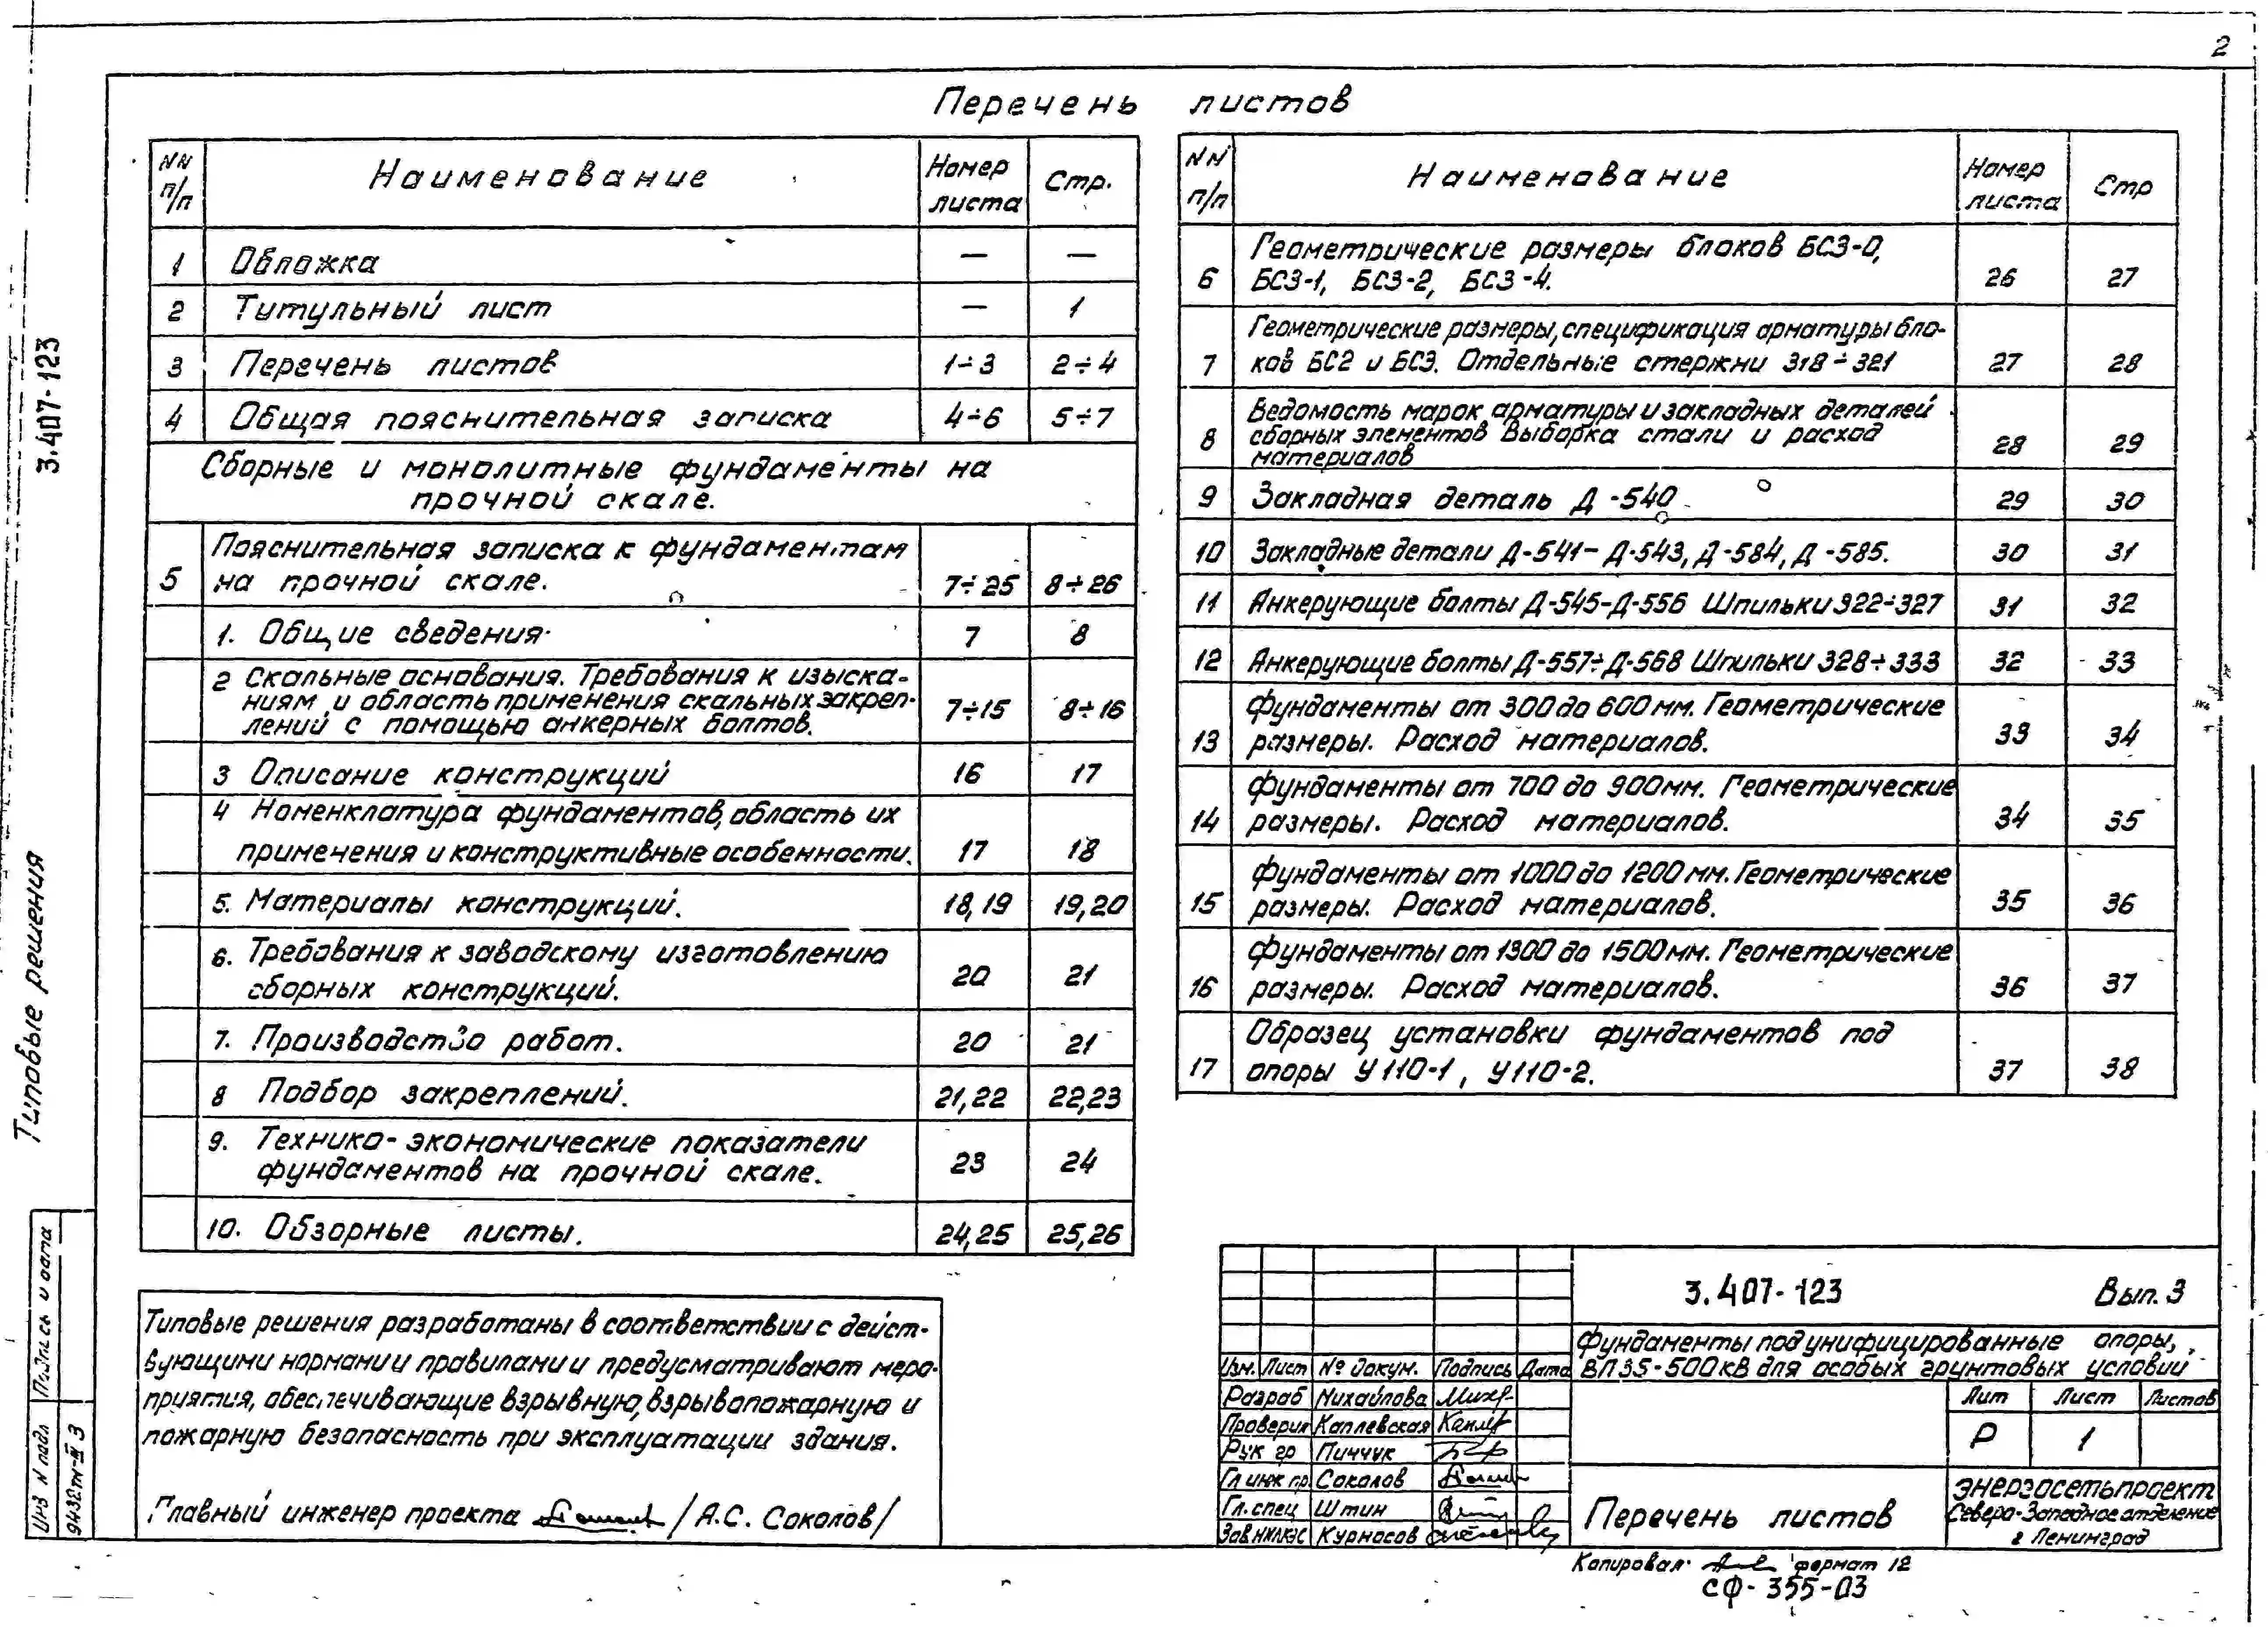 2
Перечень листов
NN п/п
Наименование
Номер листа
Стр.
1 Обложка — —
2 Титульный лист — 1
3 Перечень листов 1÷3 2÷4
4 Общая пояснительная записка 4÷6 5÷7
Сборные и монолитные фундаменты на
прочной скале.
Пояснительная записка к фундаментам
5 на прочной скале. 7÷25 8÷26
1. Общие сведения 7 8
2 Скальные основания. Требования к изыска-
ниям и область применения скальных закреп-
лений с помощью анкерных болтов. 7÷15 8÷16
3 Описание конструкций 16 17
4 Номенклатура фундаментов, область их
применения и конструктивные особенности. 17 18
5. Материалы конструкций. 18,19 19,20
6. Требования к заводскому изготовлению
сборных конструкций. 20 21
7. Производство работ. 20 21
8 Подбор закреплений. 21,22 22,23
9. Технико-экономические показатели
фундаментов на прочной скале. 23 24
10. Обзорные листы. 24,25 25,26
NN п/п
Наименование
Номер листа
Стр
Геометрические размеры блоков БС3-0,
6 БС3-1, БС3-2, БС3-4. 26 27
Геометрические размеры, спецификация арматуры бло-
7 ков БС2 и БС3. Отдельные стержни 318÷321 27 28
Ведомость марок арматуры и закладных деталей
8 сборных элементов Выборка стали и расход
материалов 28 29
9 Закладная деталь Д-540 29 30
10 Закладные детали Д-541-Д-543, Д-584, Д-585. 30 31
11 Анкерующие болты Д-545-Д-556 Шпильки 322÷327 31 32
12 Анкерующие болты Д-557÷Д-568 Шпильки 328÷333 32 33
Фундаменты от 300 до 600 мм. Геометрические
13 размеры. Расход материалов. 33 34
Фундаменты от 700 до 900мм. Геометрические
14 размеры. Расход материалов. 34 35
Фундаменты от 1000 до 1200 мм. Геометрические
15 размеры. Расход материалов. 35 36
Фундаменты от 1300 до 1500мм. Геометрические
16 размеры. Расход материалов. 36 37
Образец установки фундаментов под
17 опоры У110-1, У110-2. 37 38
Типовые решения разработаны в соответствии с дейст-
вующими нормами и правилами и предусматривают меро-
приятия, обеспечивающие взрывную, взрывопожарную и
пожарную безопасность при эксплуатации здания.
Главный инженер проекта /А.С. Соколов/
3.407-123 Вып. 3
Фундаменты под унифицированные опоры,
ВЛ 35-500кВ для особых грунтовых условий
Изм. Лист № докум. Подпись Дата
Разраб Михайлова
Проверил Каплевская
Рук гр Пинчук
Гл инж пр Соколов
Гл. спец Штин
Зав НИЛКЭС Курносов
Лит Лист Листов
Р 1
Перечень листов
ЭНЕРГОСЕТЬПРОЕКТ
Северо-Западное отделение
г Ленинград
Копировал формат 12
СФ-355-03
Типовые решения 3.407-123
Подпись и дата
Инв N подл
9432тм-III 3